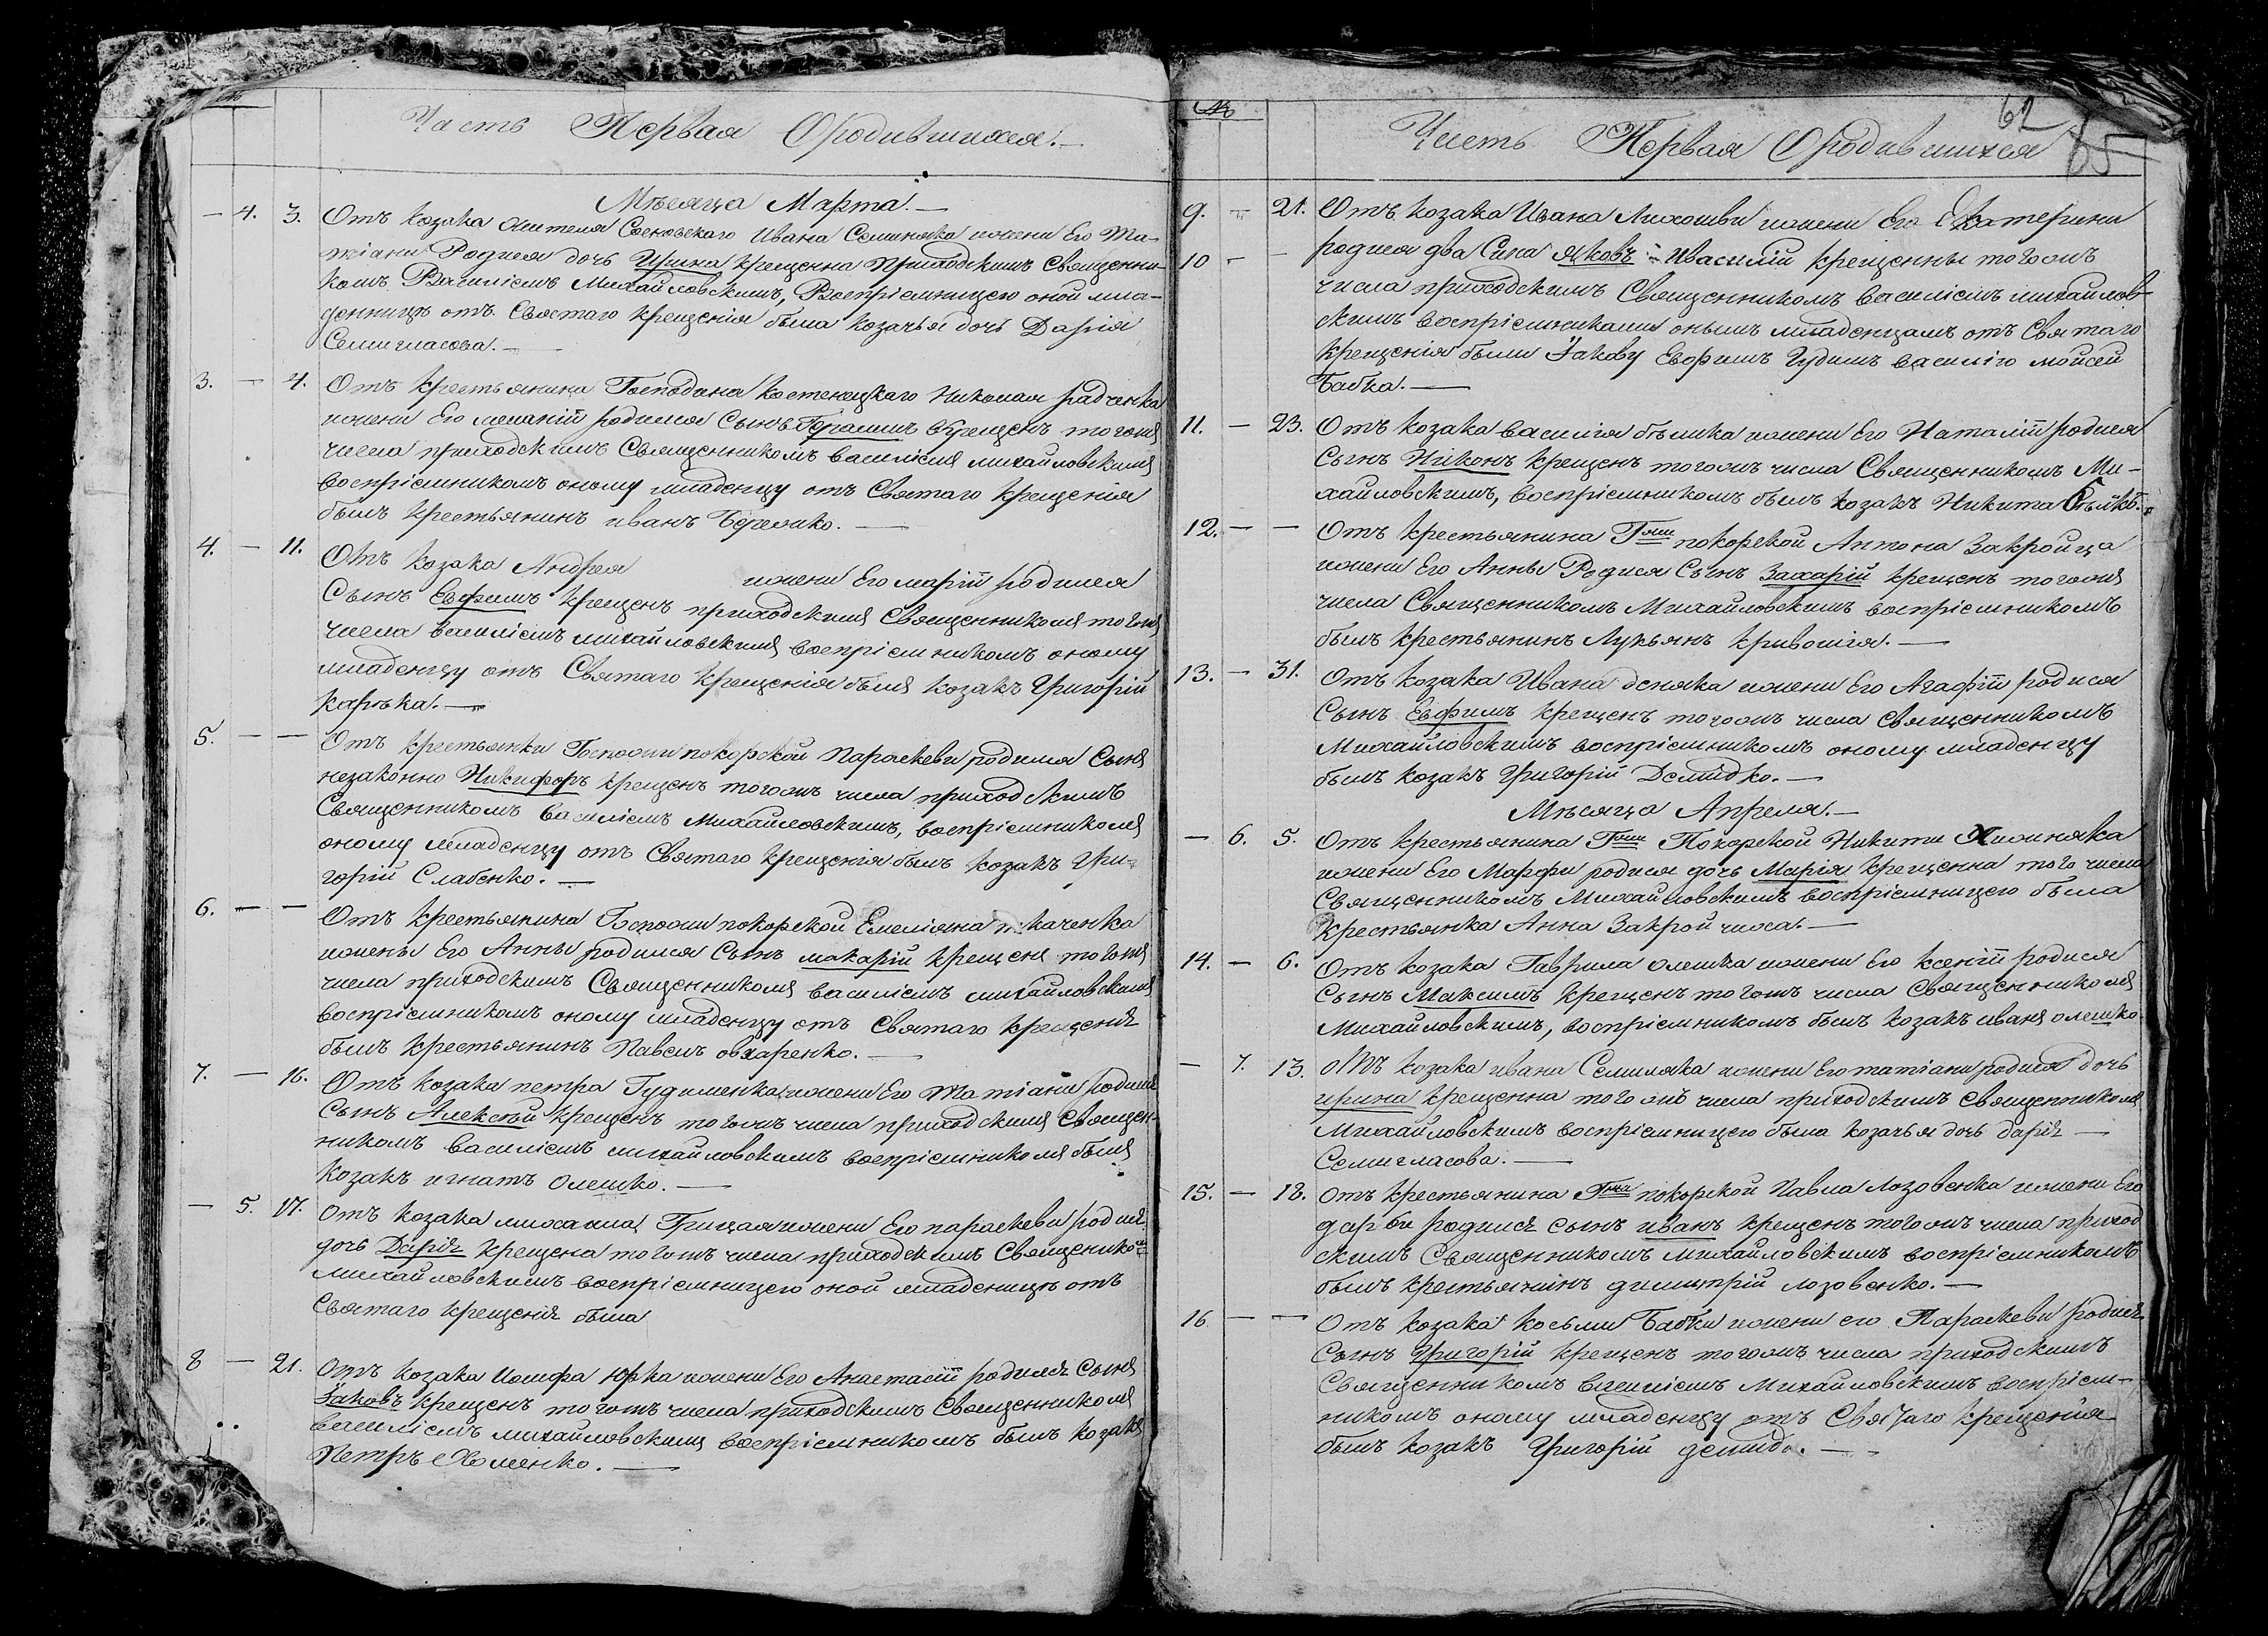 Часть Первая Ородившихся.—
Мѣсяца Марта.—
— 4. 3. Отъ козака жителя Сосновскаго Ивана Семиняка жени Его Та-
тіани Родися дочь Ирина крещенна Приходскимъ Священни-
комъ Василіемъ Михайловскимъ, Воспріемницею оной мла-
денницѣ отъ Святаго Крещенія была козачья дочь Дарія
Семигласова.—
3. — 4. Отъ крестьянина Господина костенецкаго Николая радченка
жени Его меланіи родился Сынъ Герасимъ крещенъ тогожъ
числа приходскимъ Священникомъ василіемъ михайловскимъ
воспріемникомъ оному младенцу отъ Святаго крещенія
былъ крестьянинъ иванъ .—
4. — 11. Отъ козака Андрея жени Его маріи родился
Сынъ Евфимъ крещенъ приходскимъ Священникомъ тогожъ
числа василіемъ михайловскимъ воспріемникомъ оному
младенцу отъ Святаго крещенія былъ козакъ Григорій
карька.—
5. — — Отъ крестьянки Госпожи покорской Параскеви родился Сынъ
незаконно Никифоръ крещенъ тогожъ числа приходскимъ
Священникомъ Василіемъ Михайловскимъ, воспріемникомъ
оному младенцу отъ Святаго крещенія былъ козакъ Гри-
горій Слабенко.—
6. — — Отъ крестьянина Госпожи покорской Емеліяна ткаченка
жены Его Анны родился Сынъ макарій крещенъ тогожъ
числа приходскимъ Священникомъ василіемъ михайловскимъ
воспріемникомъ оному младенцу отъ Святаго крещенія
былъ крестьянинъ Павелъ овхаренко.—
7. — 16. Отъ козака петра Гудименка жени Его Татіани родился
Сынъ Алексѣй крещенъ тогожъ числа приходскимъ Священ-
никомъ василіемъ михайловскимъ воспріемникомъ былъ
козакъ игнатъ Олешко.—
— 5. 17. Отъ козака михаила Грицая жени Его параскеви родися
дочь Дарія крещена тогожъ числа приходскимъ Священико
михайловскимъ воспріемницею оной младеницѣ отъ
Святаго крещенія была
8 — 21. Отъ козака Иосифа Юрка жени Его Анастасіи родился Сынъ
Іаковъ крещенъ тогожъ числа приходскимъ Священникомъ
василіемъ михайловскимъ воспріемникомъ былъ козакъ
Петръ Хоменко.—
№
62
65
Часть Первая Ородившихся
9. — 21. Отъ козака Ивана жени Его Екатерини
10 — — родися два Сина Яковъ и василій крещенны тогожъ
числа приходскимъ Священникомъ василіемъ михайлов-
скимъ воспріемниками онымъ младенцамъ отъ Святаго
крещенія были Іакову Евфимъ Гудимъ василію мойсей
Бабка.—
11. — 23. Отъ козака василія бѣлика жени Его Наталіи родися
Сынъ Никонъ крещенъ тогожъ числа Священникомъ Ми-
хайловскимъ, воспріемникомъ былъ козакъ Никита .
12. — — Отъ крестьянина Гжи покорской Антона Закройца
жени Его Анны Родися Сынъ Захарій крещенъ тогожъ
числа Священникомъ Михайловскимъ воспріемникомъ
былъ крестьянинъ Лукьянъ кривошія.—
13. — 31. Отъ козака Ивана деняка жени Его Агафіи родися
Сынъ Евфимъ крещенъ тогожъ числа Священникомъ
Михайловскимъ воспріемникомъ оному младенцу
былъ козакъ Григорій Демидко.—
Мѣсяца Апреля.—
— 6. 5. Отъ крестьянина Гжи Покорской Никити Хижняка
жени Его Марфи родися дочь Марія крещенна того числа
Священникомъ Михайловскимъ воспріемницею была
крестьянка Анна Закройчиха.—
14. — 6. Отъ козака Гаврила олешка жени Его ксеніи родися
Сынъ Максимъ крещенъ тогожъ числа Священникомъ
Михайловскимъ, воспріемникомъ былъ козакъ иванъ олешко.
— 7. 13. Отъ козака ивана Семиляка жени Его татіани родися дочь
ирина крещенна того жъ числа приходскимъ Священникомъ
Михайловскимъ воспріемницею была козачья дочь дарія —
Семигласова.—
15. — 18. Отъ крестьянина Гжи покорской Павла лозовенка жени Его
дарьи родися сынъ иванъ крещенъ тогожъ числа приход
скимъ Священникомъ михайловскимъ воспріемникомъ
былъ крестьянинъ димитрій лозовенко.—
16 — — Отъ козака косьми Бабки жени его Параскеви родися
Сынъ Григорій крещенъ тогожъ числа приходскимъ
Священникомъ василіемъ Михайловскимъ воспріем-
никомъ оному младенцу отъ Святаго крещенія
былъ козакъ Григорій демидо.—